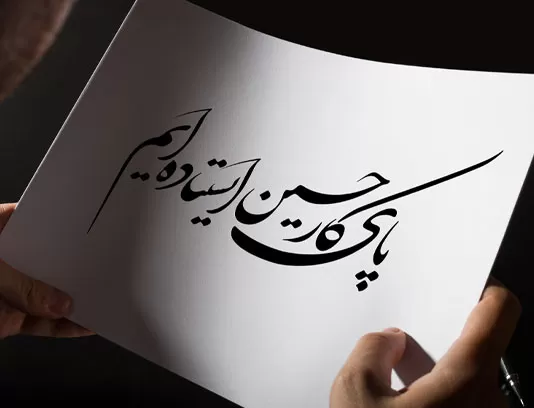 پای کار حسین ایستاده ایم